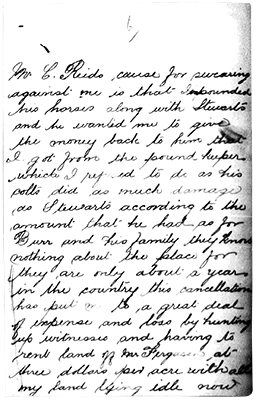 6
Mr C. Reids cause for swearing
against me is that I impounded
his horses along with Stewarts
and he wanted me to give
the money back to him that
I got from the pound keeper
which I to do as his
colts did as much damage
as Stewarts according to the
amount that he had as for
Burr and his family they know
nothing about the place for
they are only about a year
in the country this cancellation
has put me to a great deal
of expense and loss by hunting
up witnesses and having to
rent land of Mr Ferguson at
three dollars per acre with all
my land lying idle now